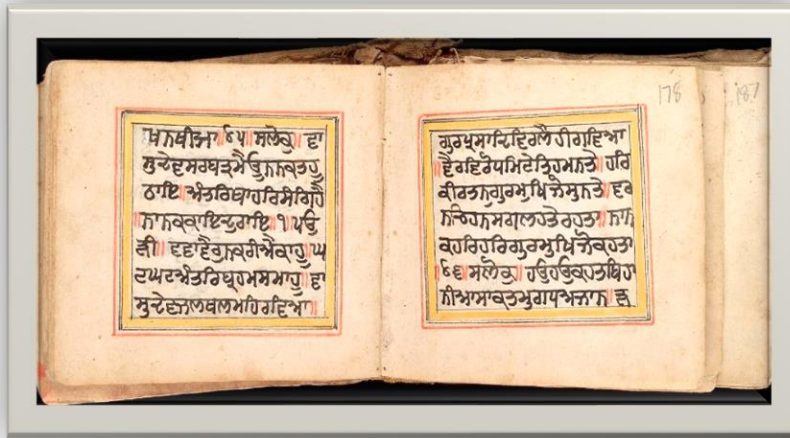 ਖਨਥੀਆ॥੪੫॥ਸਲੋਕੁ॥ਵਾ
ਸੁਦੇਵਸਰਬਤ੍ਰਮੈਊਨਨਕਤਹੂ
ਠਾਇ॥ਅੰਤਰਿਬਾਹਰਿਸੰਗਿਹੈ
॥ਨਾਨਕਕਾਇਦੁਰਾਇ॥੧॥ਪਉ
ੜੀ॥ਵਵਾਵੈਰੁਨਕਰੀਐਕਾਹੂ॥ਘ
ਟਘਟਅੰਤਰਿਬ੍ਰਹਮਸਮਾਹੂ॥ਵਾ
ਸੁਦੇਵਜਲਥਲਮਹਿਰਵਿਆ॥
178
187
ਗੁਰਪ੍ਰਸਾਦਿਵਿਰਲੈਹੀਗਵਿਆ
॥ਵੈਰਵਿਰੋਧਮਿਟੇਤਿਹਮਨਤੇ॥ਹਰਿ
ਕੀਰਤਨਗੁਰਮੁਖਿਜੋਸੁਨਤੇ॥ਵਰ
ਨਚਿਹਨਸਗਲਹਤੇਰਹਤਾ॥ਨਾਨ
ਕਹਰਿਹਰਿਗੁਰਮੁਖਿਜੋਕਹਤਾ
॥੪੬॥ਸਲੋਕੁ॥ਹਉਹਉਕਰਤਬਿਹਾ
ਨੀਆਸਾਕਤਮੁਗਧਅਜਾਨ॥ੜ